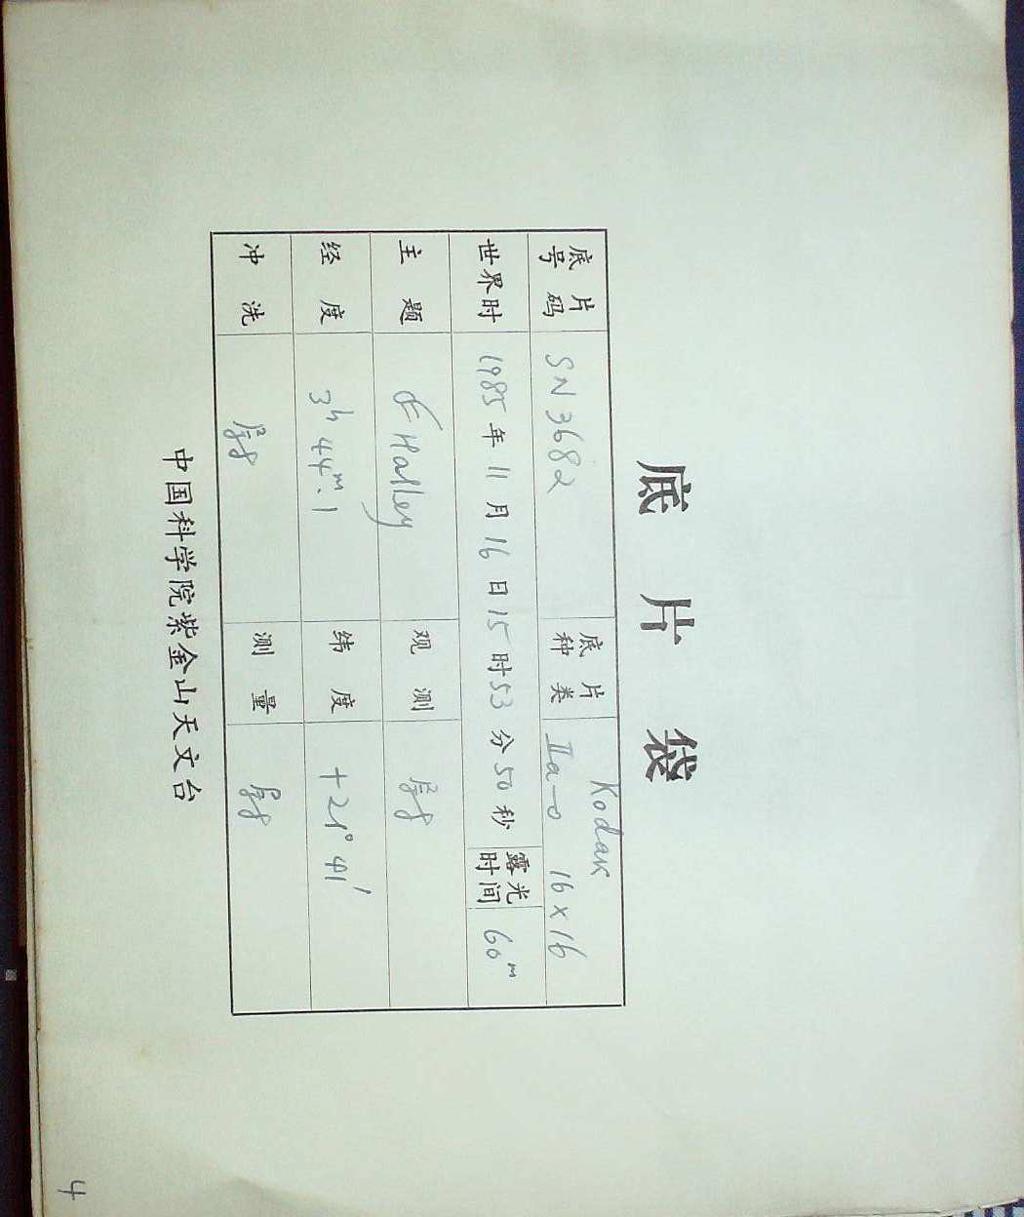 底片袋
底片号码 SN3682 底片种类 Kodak IIa-o 16×16
世界时 1985年11月16日15时53分50秒 露光时间 60m
主题 Halley 观测
经度 3h 44m.1 纬度 +21° 41′
冲洗 测量
中国科学院紫金山天文台
4